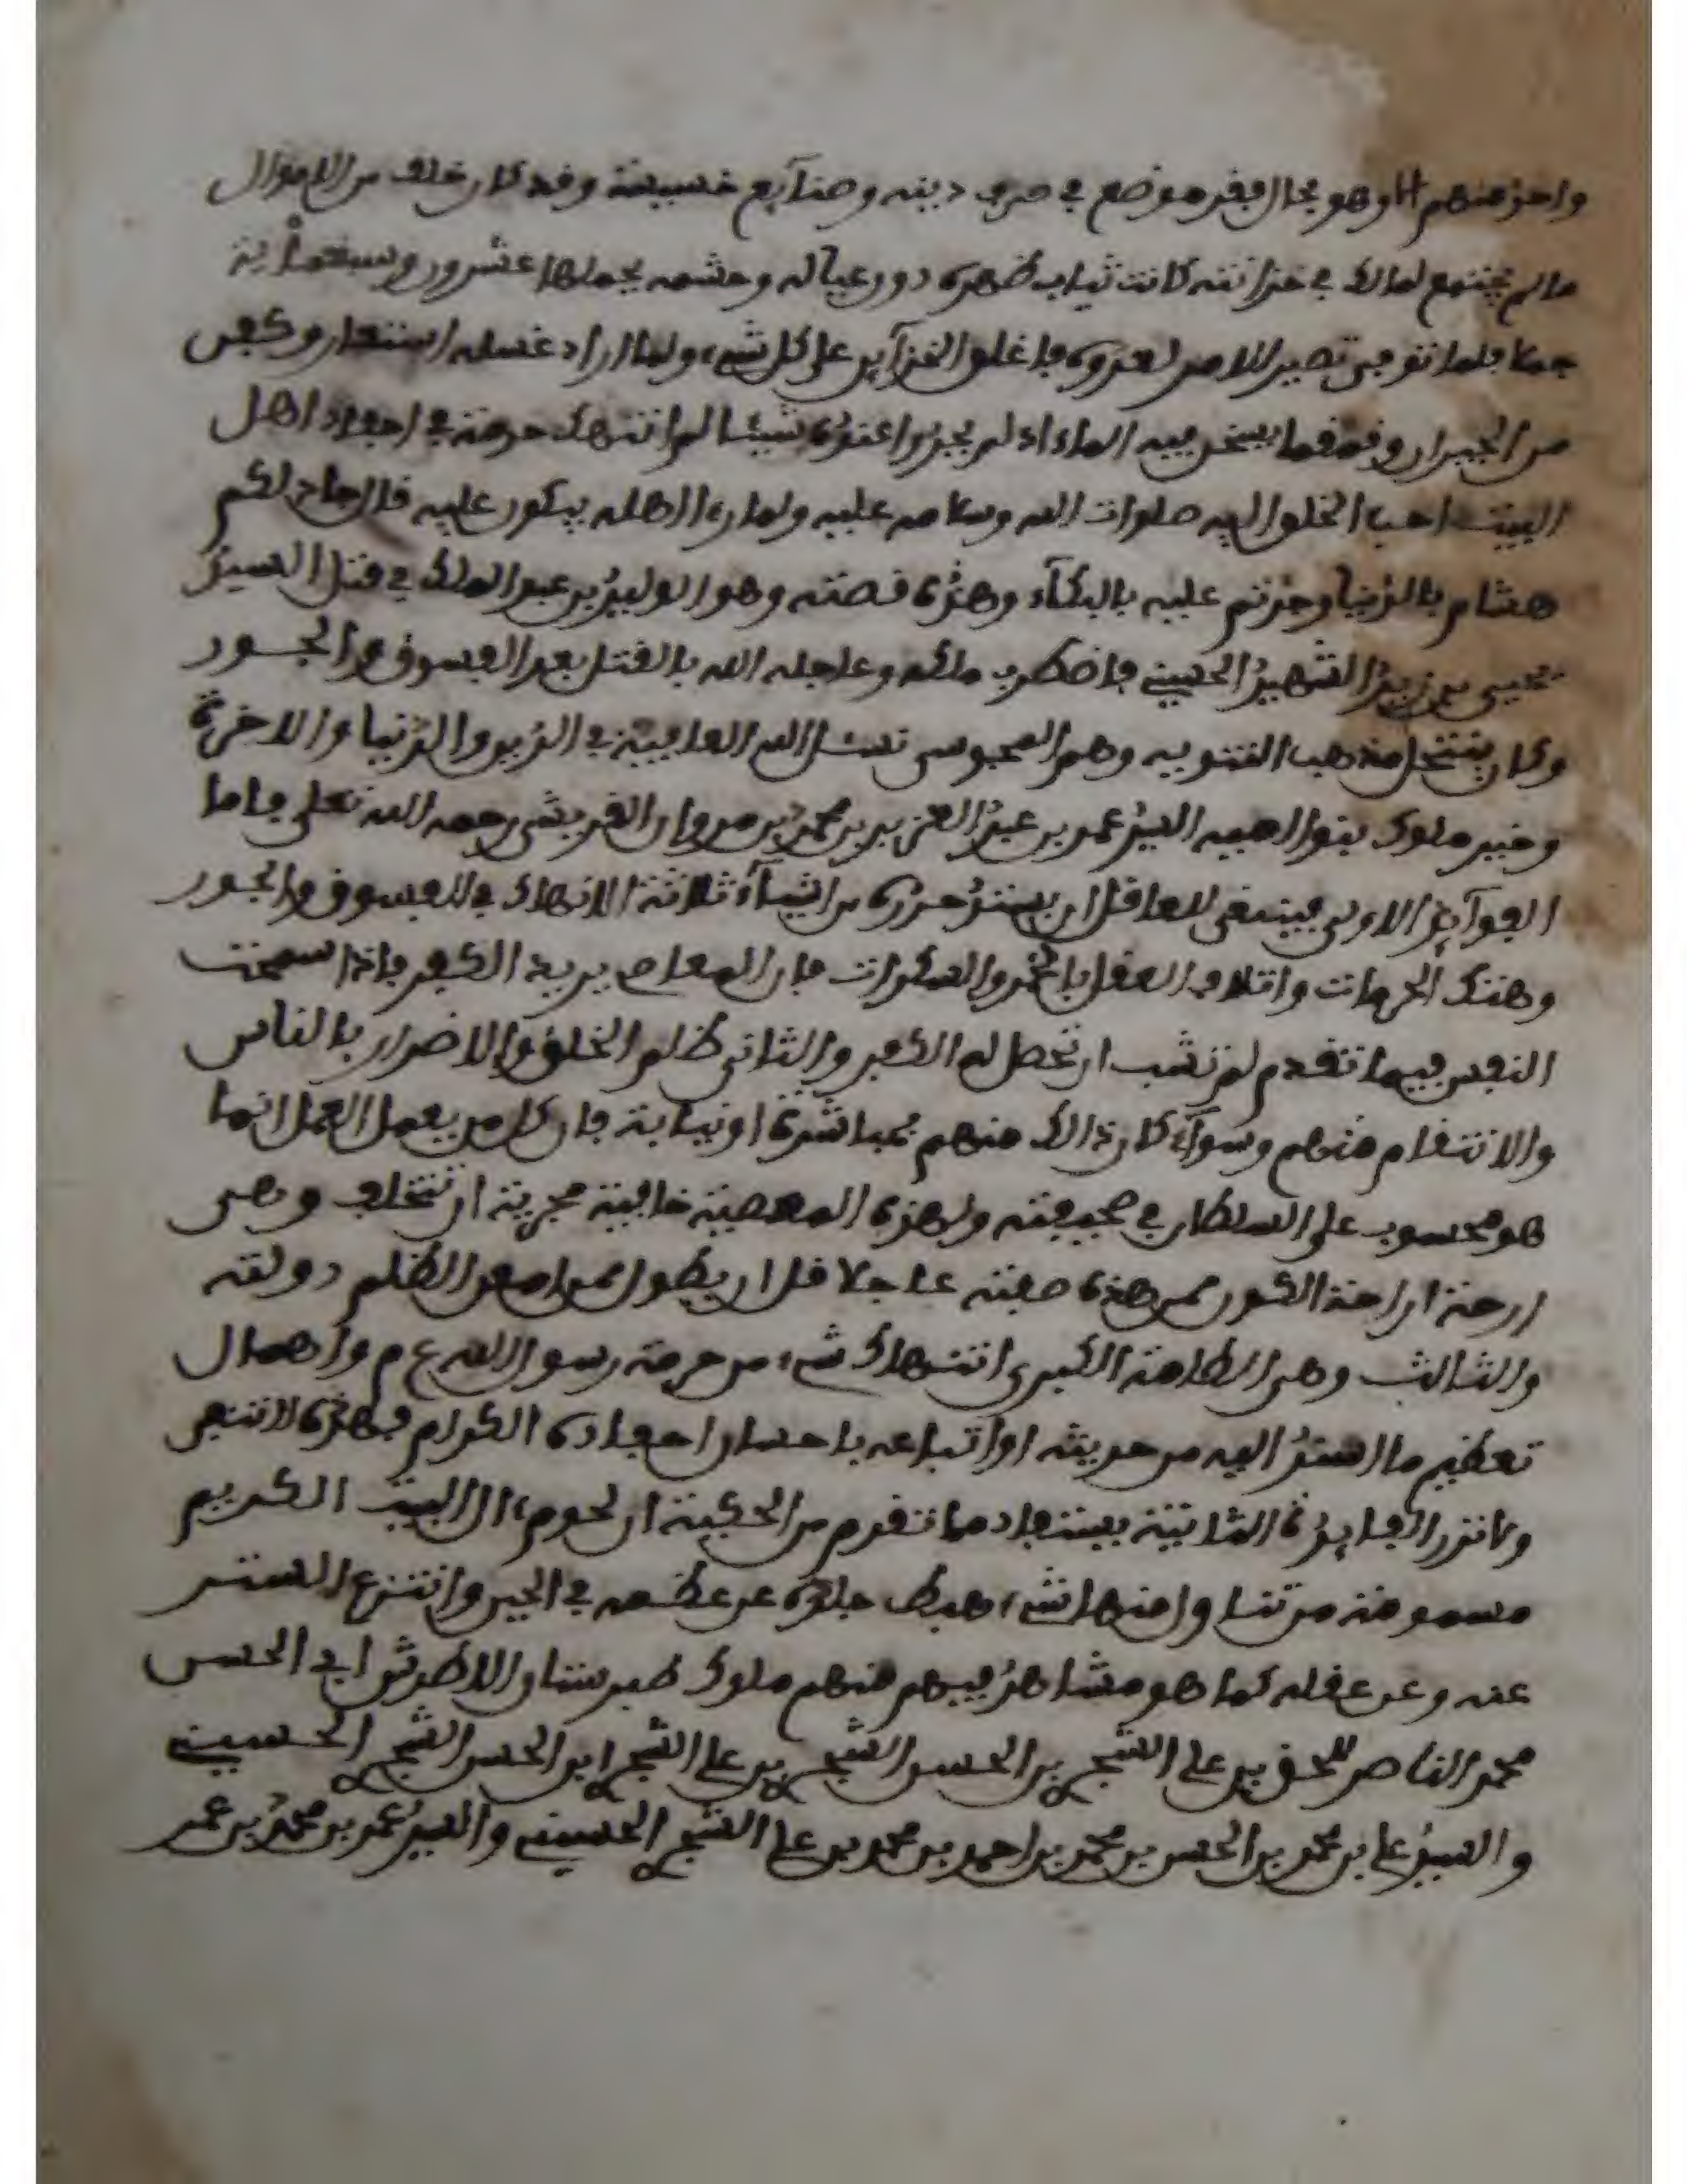 واحد منهم الا وهو بحال فقر موضع في حرب دينه وضنآيع خسيسة وقد كان خلف من الاموال
ما لم يجتمع لمالك في خزانته كانت ثياب ظهره دون عياله وحشمه يحملها عشرون وسبعمأية
جملا فلما توفى تصير الامر لعدوه فاغلق الخزآين على كل شيء ولما اراد غسله استعاروا
من الجيران قمقما يسخن فيه الماء اذ لم يجدوا عنده شيئا لما انتهك حرمة في احفاد اهل
البيت احب الخلق اليه صلوات الله وسلامه عليه ولما رءا اهله يبكون عليه قال جاد لكم
هشام بالدنيا وجدتم عليه بالبكآء وهذه قصته وهو الوليد بن عبد الملك في قتل السيد
يحيى بن زيد الشهيد الحسيني فاضطرب ملكه وعاجله الله بالقتل بعد الفسوق والجور
وكان ينتحل مذهب الثنويه وهم المجوس نسئل الله العافية في الدين والدنيا والاخرة
وخير ملوك بنوا اميه السيد عمر بن عبد العزيز بن محمد بن مروان القريشي رحمه الله تعلى فاما
الفوآيد الاولى فينبغي للعاقل ان يشتد حذره من اشيآء ثلاثة الانهماك في الفسوق والجور
وهتك الحرمات واتلاف العقل بالخمر والمسكرات فان المعاصي بريد الكفر فاذا سمحت
النفس فيما تقدم لم تشب ان تحصل له الكفر والثاني ظلم الخلق والاضرار بالناس
والانتقام منهم وسوآء كان ذالك منهم بمباشرة او نيابة فان كل من يعمل العمل انما
هو محسوب على السلطان في صحيفته ولهذه المعصية خاصية مجربة ان تتخلف وهي
ارحة اراحة الكون ممن هذه صفته عاجلا قل ان يطول ممن امعن الظلم دولته
والثالث وهي الطامة الكبرى انتهاك شيء من حرمة رسول الله ع م واهمال
تعظيم ما استند اليه من حديثه او اتباعه باحسان احفاده الكرام فهذه لا تبقى
ولا تذر الفايدة الثانية يستفاد مما تقدم من الحكية ان لحوم ءال البيت الكريم
مسمومة من تناول منها شيء هبط جلده عن عظمه في الحين وانتزع الستر
عنه وعن عقله كما هو مشاهد فيهم فمنهم ملوك طبرستان الاطرش ابي الحسن
محمد الناصر للحق بن على الشجري بن الحسن الشجري بن علي الشجري ابن الحسن الشجري الحسيني
والسيد علي بن محمد بن الحسن بن محمد بن احمد بن محمد بن علي الشجري الحسيني والسيد عمر بن محمد بن عمر